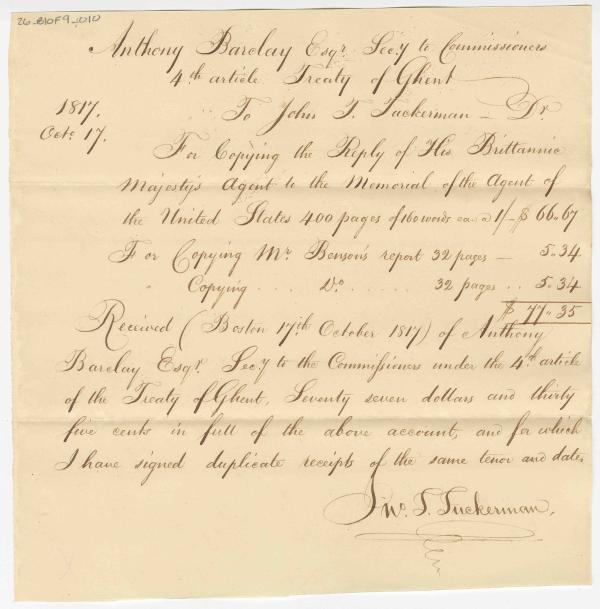 26_B10F9_1010
Anthony Barclay Esqr. Secy to Commissioners
4th article Treaty of Ghent
1817. To John T. Tuckerman — Dr.
Octo 17. For Copying the Reply of His Brittannic
Majesty's Agent to the Memorial of the Agent of
the United States 400 pages of 160 words ea. @ 1/– $ 66.67
For Copying Mr. Benson's report 32 pages — 5.34
" Copying . . . . Do . . . . . . 32 pages . . 5.34
$ 77.35
Received (Boston 17th October 1817) of Anthony
Barclay Esqr. Secy to the Commissioners under the 4th article
of the Treaty of Ghent, Seventy seven dollars and thirty
five cents in full of the above account, and for which
I have signed duplicate receipts of the same tenor and date.
Jno. T. Tuckerman,